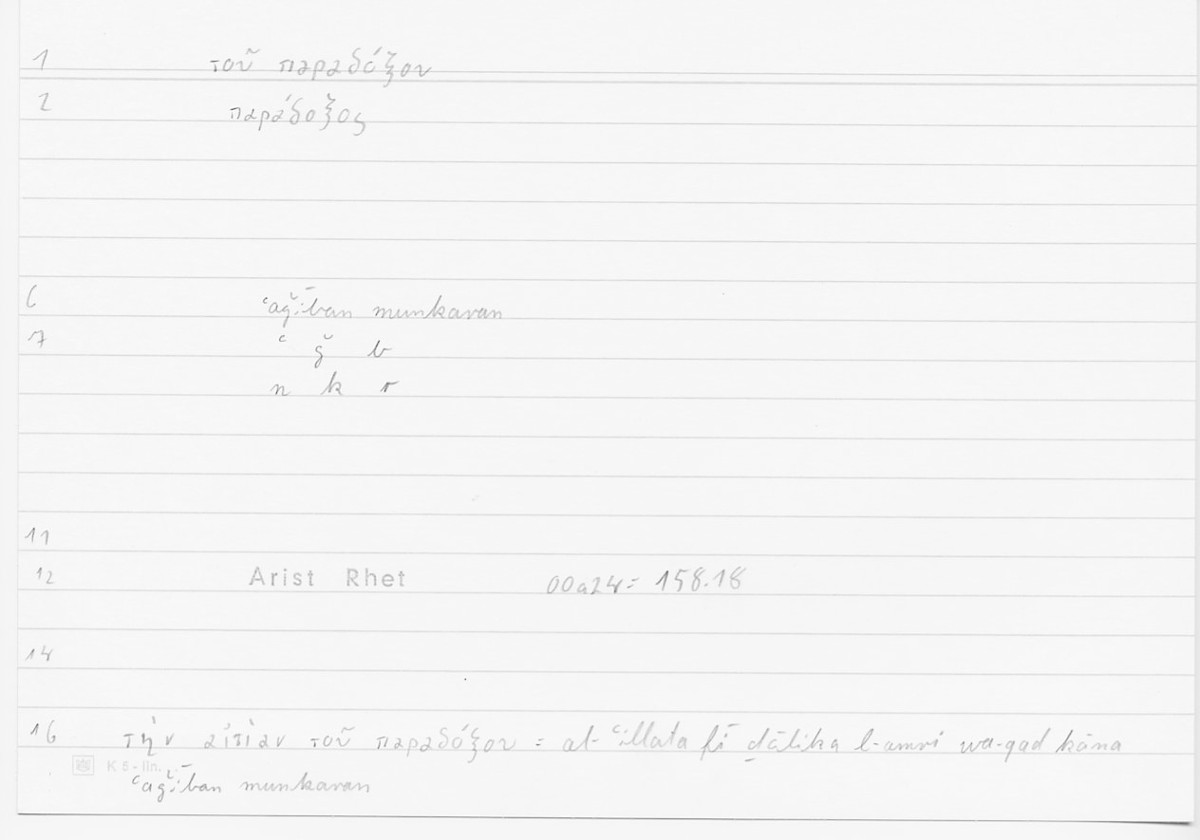 1 τοῦ παραδόξου
2 παράδοξος
6 ʿaǧīban munkaran
7 ʿ ǧ b
n k r
11
12 Arist Rhet 00a24 = 158.18
14
16 τὴν αἰτίαν τοῦ παραδόξου = al-ʿillata fī ḏālika l-amri wa-qad kāna
K 5 - lin.
ʿaǧīban munkaran